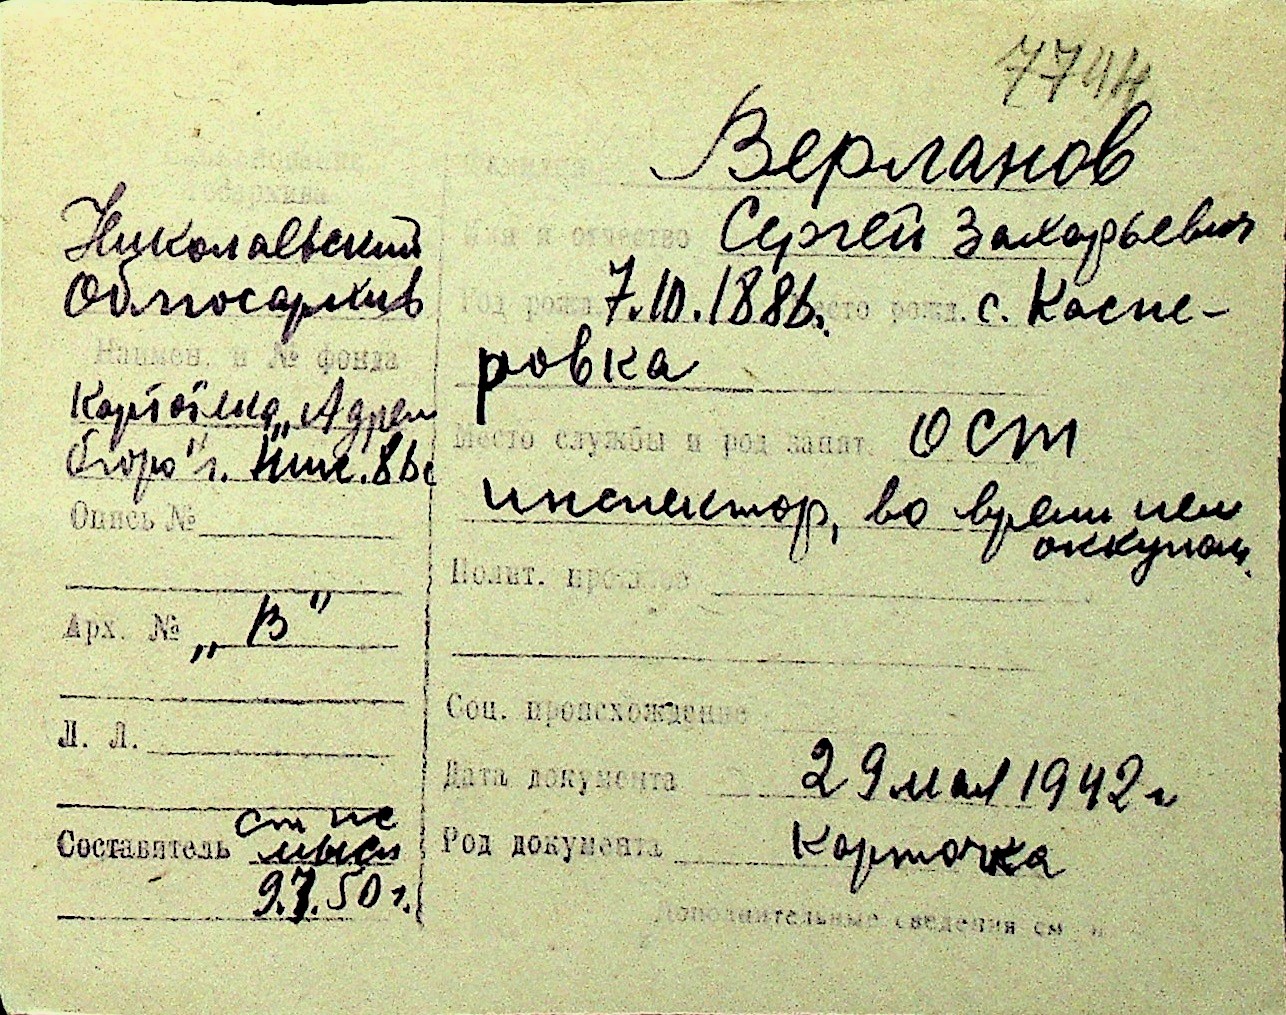 7744
Наименование
госархива
Николаевский
Облгосархив
Наимен. и № фонда
Картотека „Адресн
бюро" г. Ник.
Опись №
Арх. № „В"
Л. Л.
Составитель
9.7.50 г.
Фамилия Верланов
Имя и отчество Сергей Захарьевич
Год рожд. 7.10.1886. Место рожд. с. Каспе-
ровка
Место службы и род занят. ост
инспектор, во время нем
оккупац.
Полит. прошлое
Соц. происхождение
Дата документа 29 мая 1942 г
Род документа Карточка
Дополнительные сведения см. н